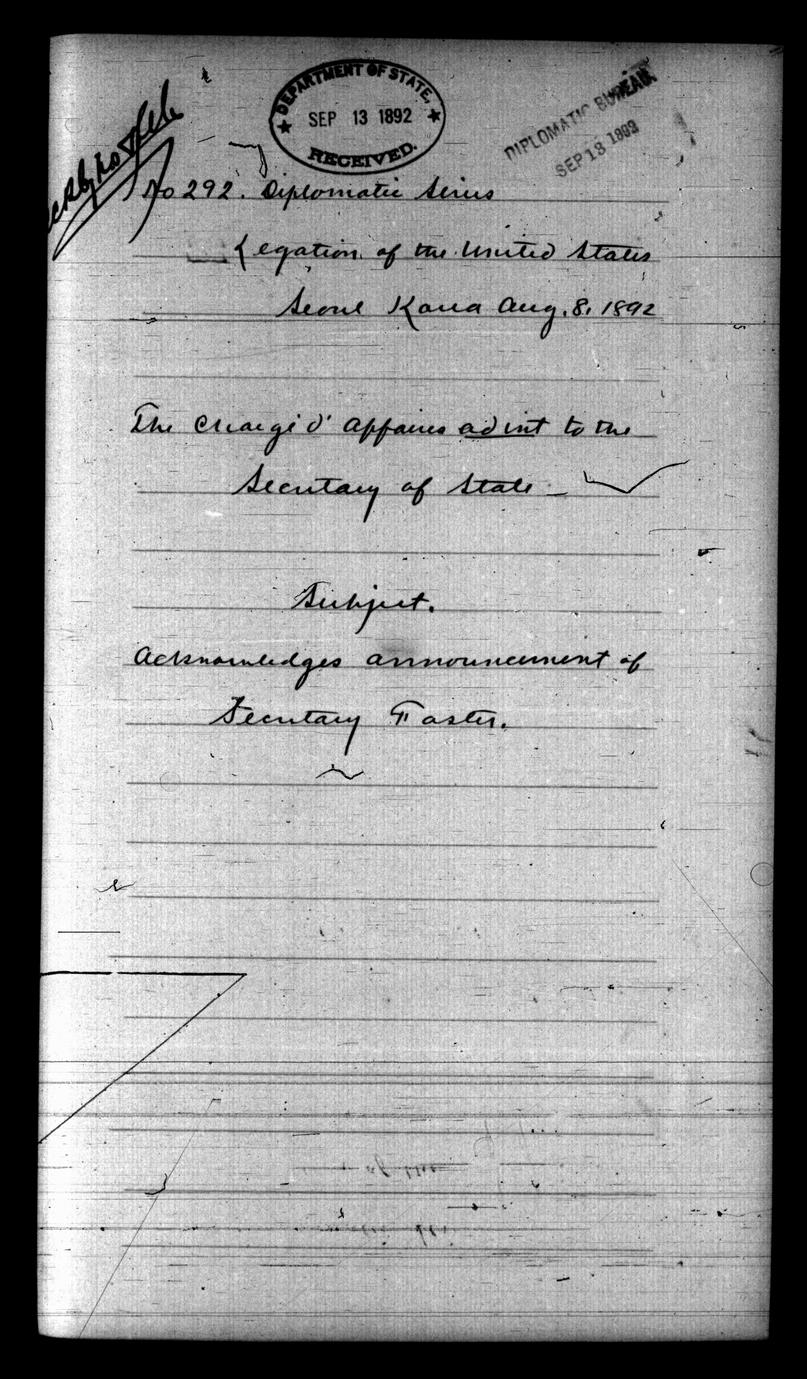 DEPARTMENT OF STATE.
SEP 13 1892
RECEIVED.
DIPLOMATIC BUREAU.
SEP 13 1892
No 292. Diplomatic Series
Legation of the United States
Seoul Korea Aug. 8, 1892
The Chargé d' Affaires ad int to the
Secretary of State —
Subject.
Acknowledges announcement of
Secretary Foster.